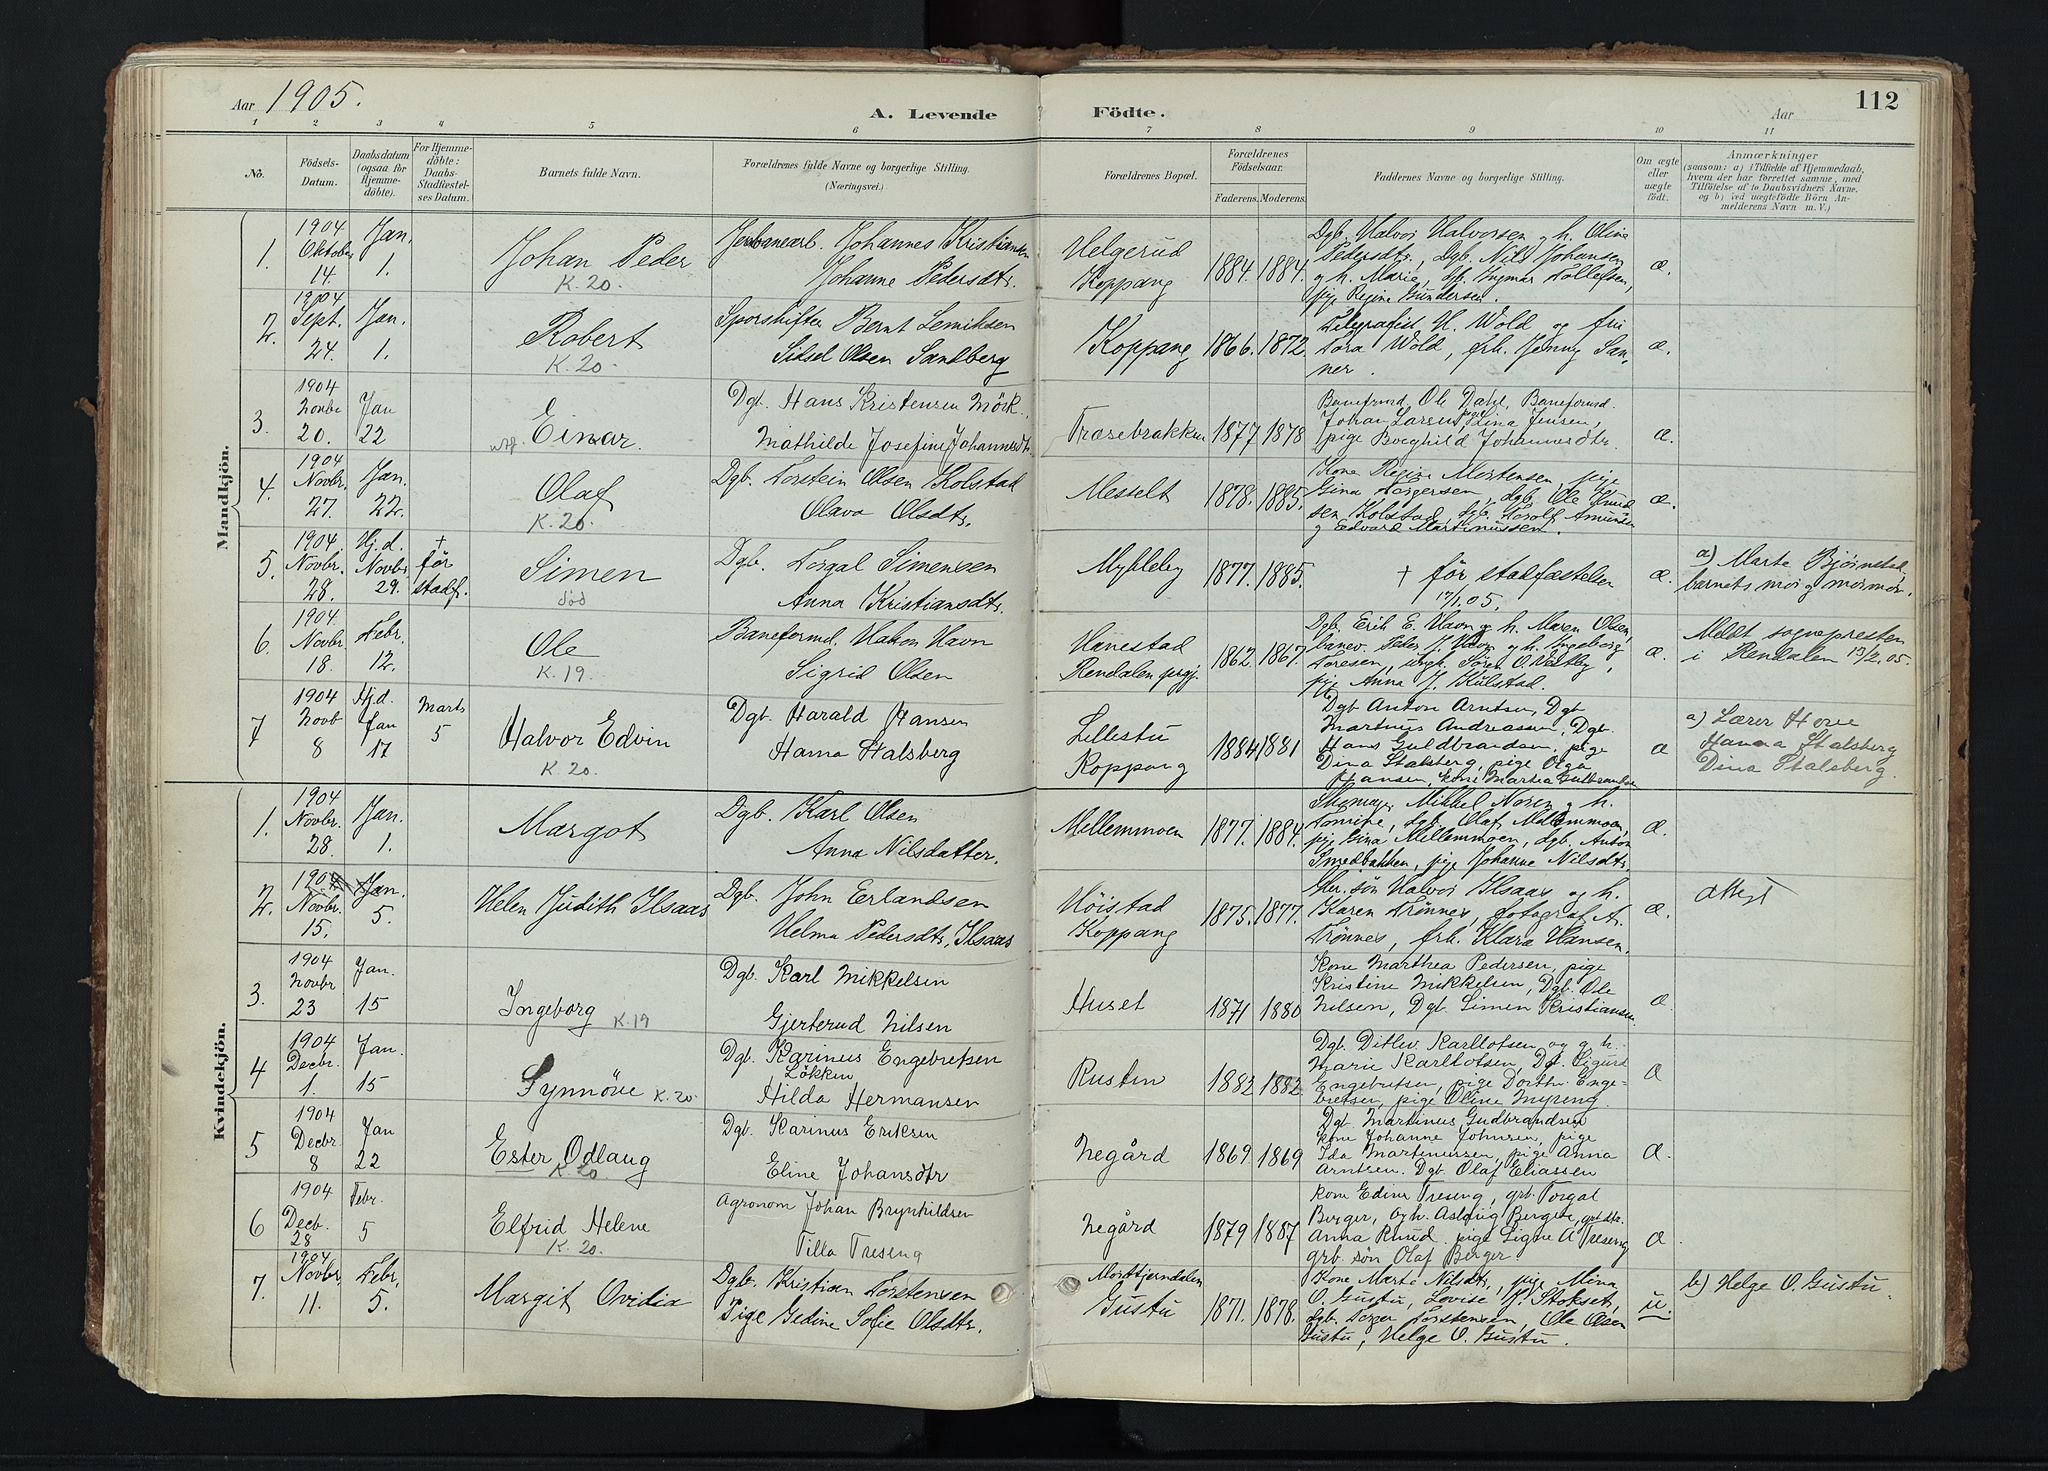 Aar 1905.
A. Levende Födte.
Aar
112
1 2 3 4 5 6 7 8 9 10 11
No.
Födsels-Datum.
Daabsdatum (ogsaa for Hjemmedöbte).
For Hjemmedöbte: Daabs-Stadfæstelses Datum.
Barnets fulde Navn.
Forældrenes fulde Navne og borgerlige Stilling. (Næringsvei.)
Forældrenes Bopæl.
Forældrenes Födselsaar.
Faderens. Moderens.
Faddernes Navne og borgerlige Stilling.
Om ægte eller uægte födt.
Anmærkninger
(saasom: a) i Tilfælde af Hjemmedaab, hvem der har forrettet samme, med Tilföielse af to Daabsvidners Navne, og b) ved uægtefödte Börn Anmelderens Navn m. V.)
Mandkjön.
1. 1904 Oktober 14. Jan. 1. Johan Peder K. 20.
Jernbanearb. Johannes Kristiansen
Johanne Pedersdtr.
Helgerud Koppang 1884. 1884.
Dgb. Halvor Halvorsen og h. Oline
Pedersdtr., Dgb. Nils Johansen
og h. Marie, dgb. Ingmar Tollefsen,
pige Regine Gundersen.
æ.
2. 1904 Sept. 24. Jan. 1. Robert K. 20.
Sporskifter Bernt Lemiksen
Sidsel Olsen Sandberg
Koppang 1866. 1872.
Telegrafist H. Wold og fru
Tora Wold, frk. Jenny San-
ner.
æ.
3. 1904 Novbr 20. Jan 22 Einar.
Dgb. Hans Kristensen Mörk.
Mathilde Josefine Johannesdtr.
Træsebrakken 1877 1878
Baneformd. Ole Dahl, Baneformd.
Johan Larsen, pige Lina Jensen,
pige Borghild Johannesdtr.
æ.
4. 1904 Novbr. 27. Jan. 22. Olaf K. 20.
Dgb. Torstein Olsen Kolstad
Olava Olsdtr.
Messelt 1878. 1885.
Kone Regine Mortensen, pige
Gina Torgersen, dgb. Ole Knud
sen Kolstad, dgb. Torolf Amundsen
og Edvard Martinussen.
æ.
5. 1904. Novbr. 28. Hj.d. Novbr 29. † før stadf. Simen død
Dgb. Torgal Simensen
Anna Kristiansdtr.
Mykleby 1877. 1885.
† før stadfæstelsen
17/1.05.
æ.
a) Marte Bjørnstad,
barnets mor og mormor.
6. 1904 Novbr. 18. Febr. 12. Ole K. 19.
Baneformd. Hakon Havn
Sigrid Olsen
Hanestad Rendalen prgj. 1862. 1867.
Dgb. Erik E. Havn og h. Maren Olsen,
banev. Peder J. Havn og h. Ingeborg
Toresen, ungk. Søren O. Vestby,
pige Anna J. Kulstad.
æ.
Meldt sognepresten
i Rendalen 13/2.05.
7 1904 Novb 8 Hj.d. Jan 17 Marts 5 Halvor Edvin K. 20.
Dgb. Harald Hansen
Hanna Stalsberg
Lillestu Koppang 1884 1881
Dgb Anton Arntsen, Dgb
Martinus Andreassen, Dgb.
Hans Guldbrandsen, pige
Dina Stalsberg, pige Olga
Hansen, kone Martha Gulbrandsen
æ
a) Lærer Hove
Hanna Stalsberg
Dina Stalsberg.
Kvindekjön.
1. 1904 Novbr. 28. Jan. 1. Margot
Dgb. Karl Olsen
Anna Nilsdatter.
Millemmoen 1877. 1884.
Skomager Mikkel Noren og h.
Tomine, dgb. Olaf Millemmoen,
pige Gina Millemmoen, dgb. Anton
Smedbakken, pige Johanne Nilsdtr.
æ.
2. 1904 Novbr. 15. Jan. 5. Helen Judith Ilsaas
Dgb. John Erlandsen
Helma Pedersdtr. Ilsaas
Høistad Koppang 1875. 1877.
Gbr. søn Halvor Ilsaas og h.
Karen Trønnes, fotograf A.
Trønnes, frk. Klara Hansen.
æ.
attest
3. 1904 Novbr 23 Jan. 15 Ingeborg K. 19
Dgb. Karl Mikkelsen
Gjerterud Nilsen
Huset 1871 1880
Kone Marthea Pedersen, pige
Kristine Mikkelsen, Dgb. Ole
Nilsen, Dgb Simen Kristiansen.
æ
4 1904 Decbr. 1. Jan. 15 Synnöve K. 20.
Dgb. Karinus Engebretsen
Lökken
Hilda Hermansen
Rusten 1882 1882
Dgb. Ditlev Karllotsen, og g.h.
Marie Karllotsen, Dgb. Sigurd
Engebretsen, pige Dorthe Enge-
bretsen, pige Oline Myreng.
æ
5 1904 Decbr. 8 Jan 22 Ester Odlaug K. 20.
Dgb. Karinus Eriksen
Eline Johansdtr
Negård 1869 1869
Dgb. Martinus Gudbrandsen
kone Johanne Johnsen, pige
Ida Martinussen, pige Anna
Arntsen. Dgb. Olaf Eliassen
æ.
6 1904 Decb. 28 Febr. 5 Elfrid Helene K. 20.
Agronom Johan Brynhildsen
Tilla Treseng
Negård 1879 1887
Kone Edine Treseng, grb. Torgal
Berger, og h. Aslaug Berger, grb dtr.
Anna Rund. pige Signe A Treseng
grb søn Olaf Berger.
æ.
7. 1904 Novbr. 11. Febr. 5. Margit Ovidia
Dgb. Kristian Torstensen
Pige Gedine Sofie Olsdtr.
Morttjerndalen Gustu 1871. 1878.
Kone Marte Nilsdtr, pige Mina
O. Gustu, Lovise P. Stokset,
dgb. Torger Torstensen, Ole Olsen
Gustu, Helge O. Gustu.
u.
b) Helge O. Gustu.